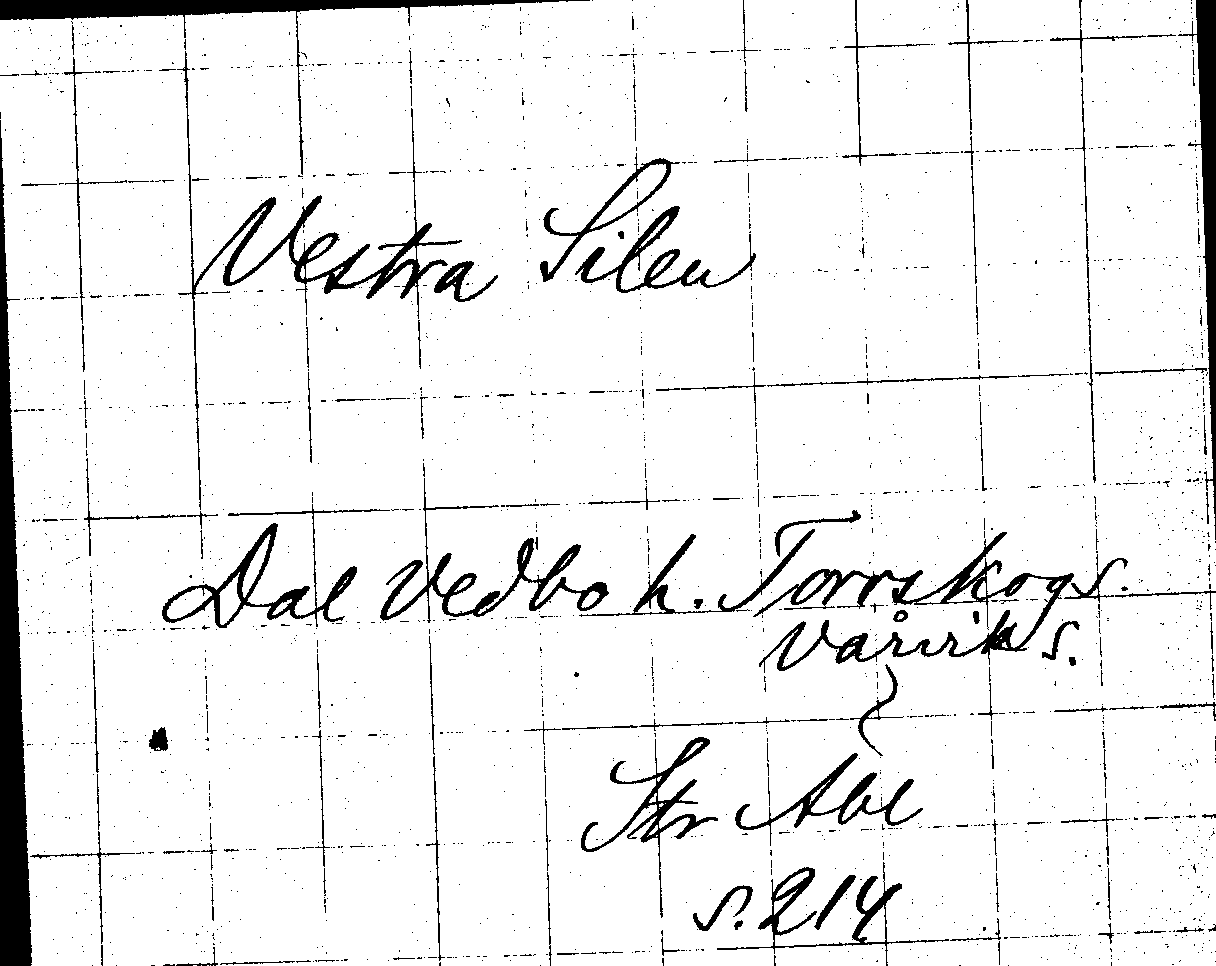 Vestra Silen
Dal Vedbo h. Torrskogs.
Vårviks s.
Str Abl
s. 214